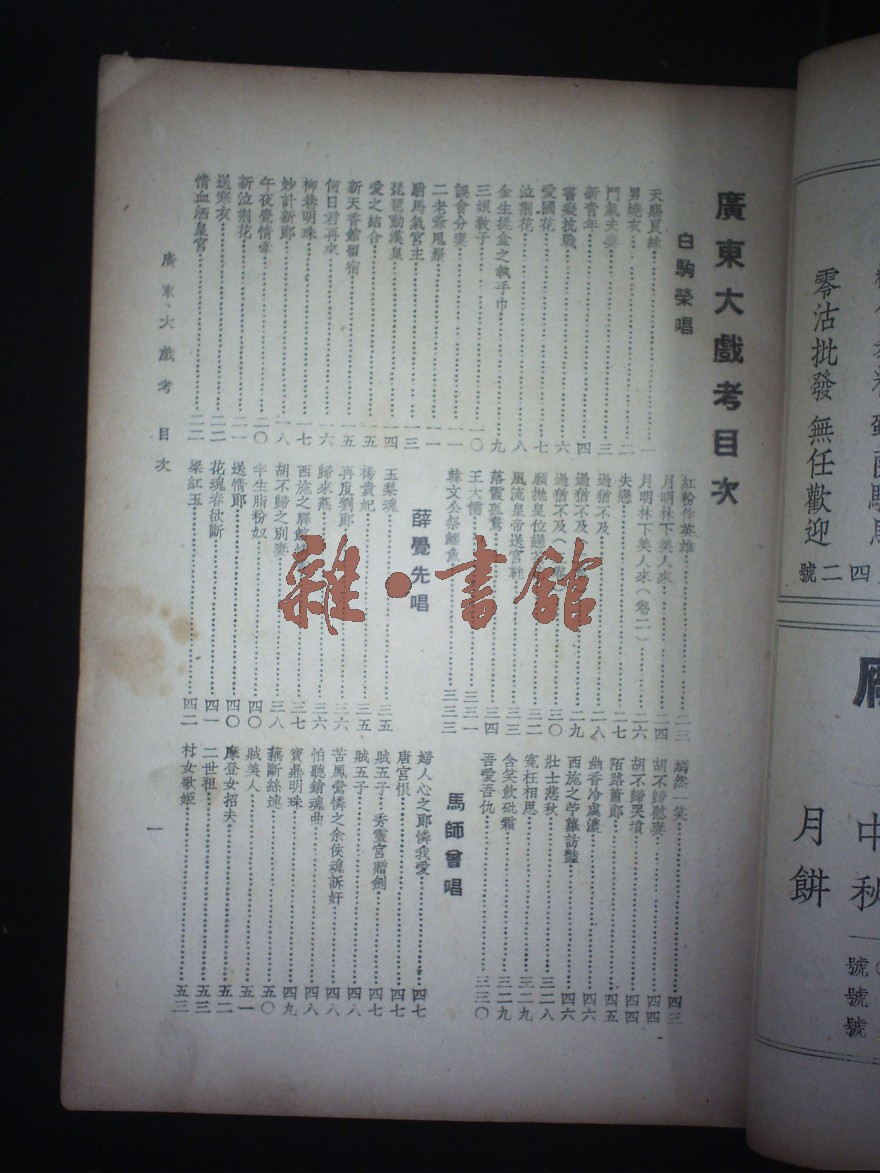 廣東大戲考目次
白駒榮唱
天賜良緣 一
男燒衣 二
鬥氣夫妻 三
新青年 四
書癡抗戰 六
愛國花 七
泣荊花 八
金生挑盒之執手巾 九
三娘教子 一〇
誤會分妻 一一
二老爺甩鬚 一一
駙馬氣宮主 一三
琵琶動漢皇 一四
愛之結合 一五
新天香館留宿 一五
何日君再來 一六
柳巷明珠 一七
妙計新郎 一八
午夜覺情牽 二〇
新泣荊花 二一
送寒衣 二二
情血洒皇宮 二二
紅粉作英雄 二三
月明林下美人來 二四
月明林下美人來(卷二) 二六
失戀 二七
過猶不及 二八
過猶不及 二九
過猶不及 三〇
願拋皇位戀 三二
風流皇帝送宮 三三
落霞孤鶩 三四
王大儒 三三一
韓文公祭鱷魚 三三三
薛覺先唱
玉梨魂 三五
楊貴妃 三五
再度劉郎 三六
歸來燕 三六
西施之驛館 三七
胡不歸之別妻 三八
半生脂粉奴 四〇
送情郎 四〇
花魂春欲斷 四一
梁紅玉 四二
嫣然一笑 四三
胡不歸慰妻 四四
胡不歸哭墳 四四
陌路蕭郎 四五
幽香冷處濃 四六
西施之苧蘿訪艷 四六
壯士悲秋 三二八
冤枉相思 三二九
含笑飲砒霜 三二九
吾愛吾仇 三三〇
馬師曾唱
婦人心之郎憐我愛 四七
唐宮恨 四七
賊王子 秀靈宮贈劍 四七
賊王子 四八
苦鳳鶯憐之余俠魂訴奸 四八
怕聽銷魂曲 四八
寶鼎明珠 四九
藕斷絲連 五〇
賊美人 五一
摩登女招夫 五二
二世祖 五三
村女歌姬 五三
廣東大戲考 目次
一
雜·書館
零沽批發 無任歡迎
四二號
中秋
月餅
號
號
號